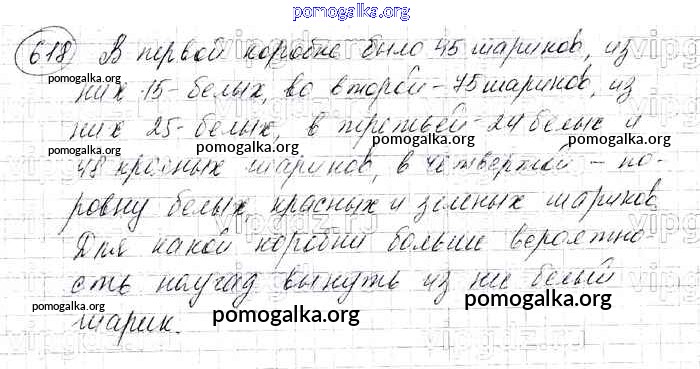 pomogalka.org
618) В первой коробке было 45 шариков, из
pomogalka.org
них 15 - белых, во второй - 75 шариков, из
pomogalka.org
них 25 - белых, в третьей - 24 белых и
48 красных шариков, в четвертой - по-
pomogalka.org
ровну белых, красных и зеленых шариков.
Для какой коробки больше вероятно-
сть наугад вынуть из нее белый
pomogalka.org pomogalka.org pomogalka.org
шарик.